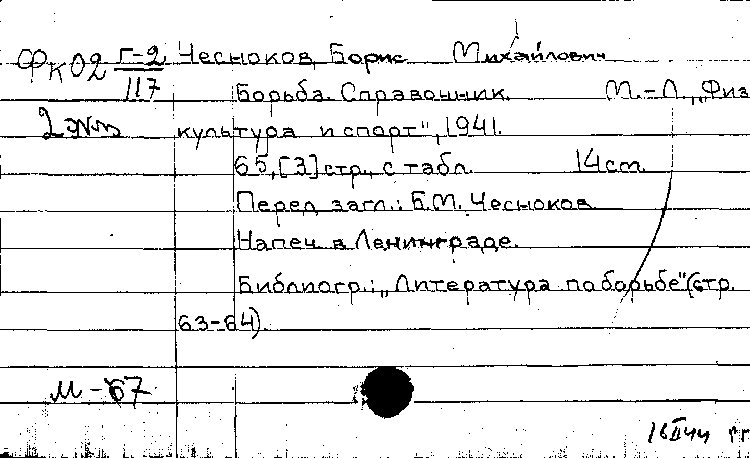 ФК02 Г-2/117 Чесноков, Борис Михайлович
Борьба. Справочник. М.-Л., „Физ
2 экз культура и спорт", 1941.
65,[3] стр., с табл. 14 cm.
Перед загл.: Б.М. Чесноков.
Напеч. в Ленинграде.
Библиогр.: „Литература по борьбе" (стр.
63-64).
М-67